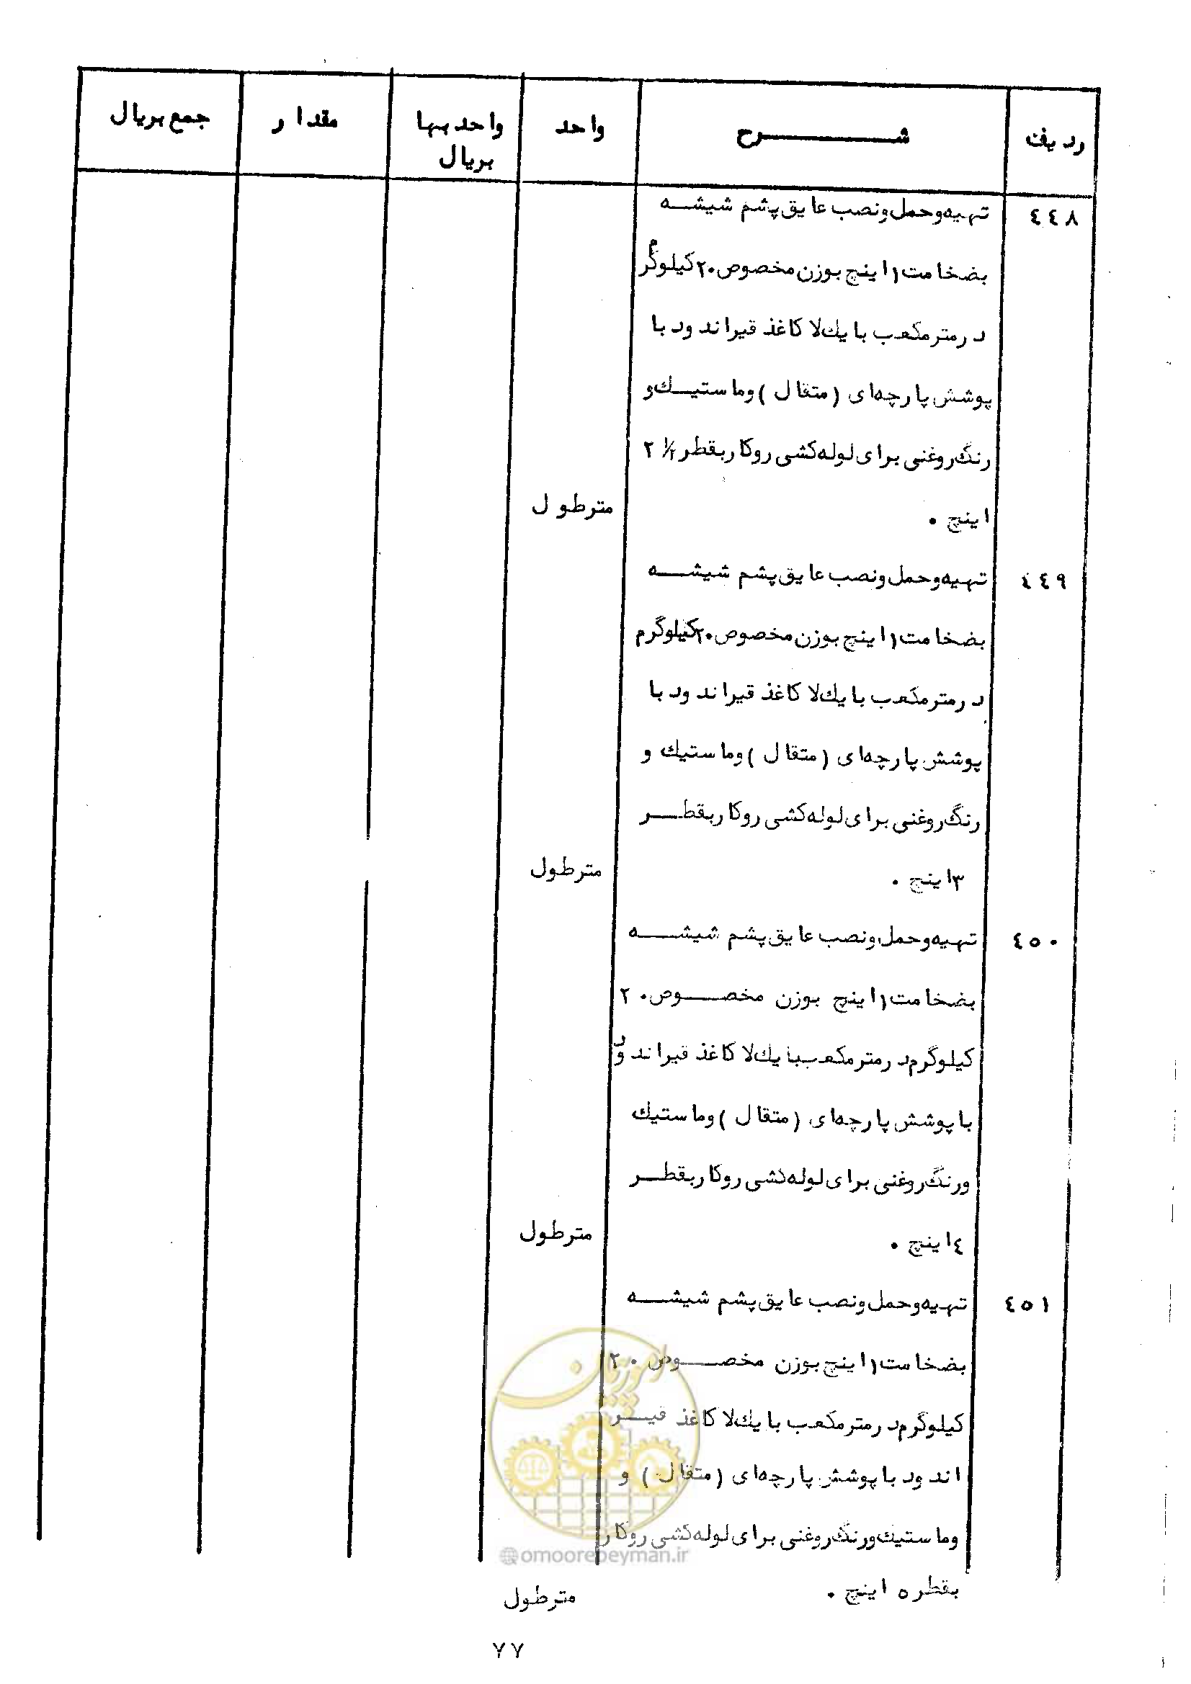 ردیف شرح واحد واحدبها مقدار جمع بریال
بریال
٤٤٨ تهیه‌وحمل‌ونصب‌عایق‌پشم شیشه
بضخامت ۱ اینچ بوزن مخصوص ۲۰ کیلوگرم
درمترمکعب بایك‌لا کاغذ قیراندود با
پوشش پارچه‌ای (متقال) وماستیك‌و
رنگ‌روغنی برای لوله‌کشی روکار بقطر ۲ ۱/۲
اینچ . مترطول
٤٤٩ تهیه‌وحمل‌ونصب‌عایق‌پشم شیشه
بضخامت ۱ اینچ بوزن مخصوص ۲۰ کیلوگرم
درمترمکعب بایك‌لا کاغذ قیراندود با
پوشش پارچه‌ای (متقال) وماستیك و
رنگ‌روغنی برای لوله‌کشی روکار بقطر
۳ اینچ . مترطول
٤٥٠ تهیه‌وحمل‌ونصب‌عایق‌پشم شیشه
بضخامت ۱ اینچ بوزن مخصوص ۲۰
کیلوگرم درمترمکعب بایك‌لا کاغذ قیراندود
با پوشش پارچه‌ای (متقال) وماستیك
ورنگ‌روغنی برای لوله‌کشی روکار بقطر
٤ اینچ . مترطول
٤٥١ تهیه‌وحمل‌ونصب‌عایق‌پشم شیشه
بضخامت ۱ اینچ بوزن مخصوص ۲۰
کیلوگرم درمترمکعب بایك‌لا کاغذ قیر
اندود با پوشش پارچه‌ای (متقال) و
وماستیك‌ورنگ‌روغنی برای لوله‌کشی روکار
بقطر ٥ اینچ . مترطول
امورپیمان
@omoorepeyman.ir
۷۷